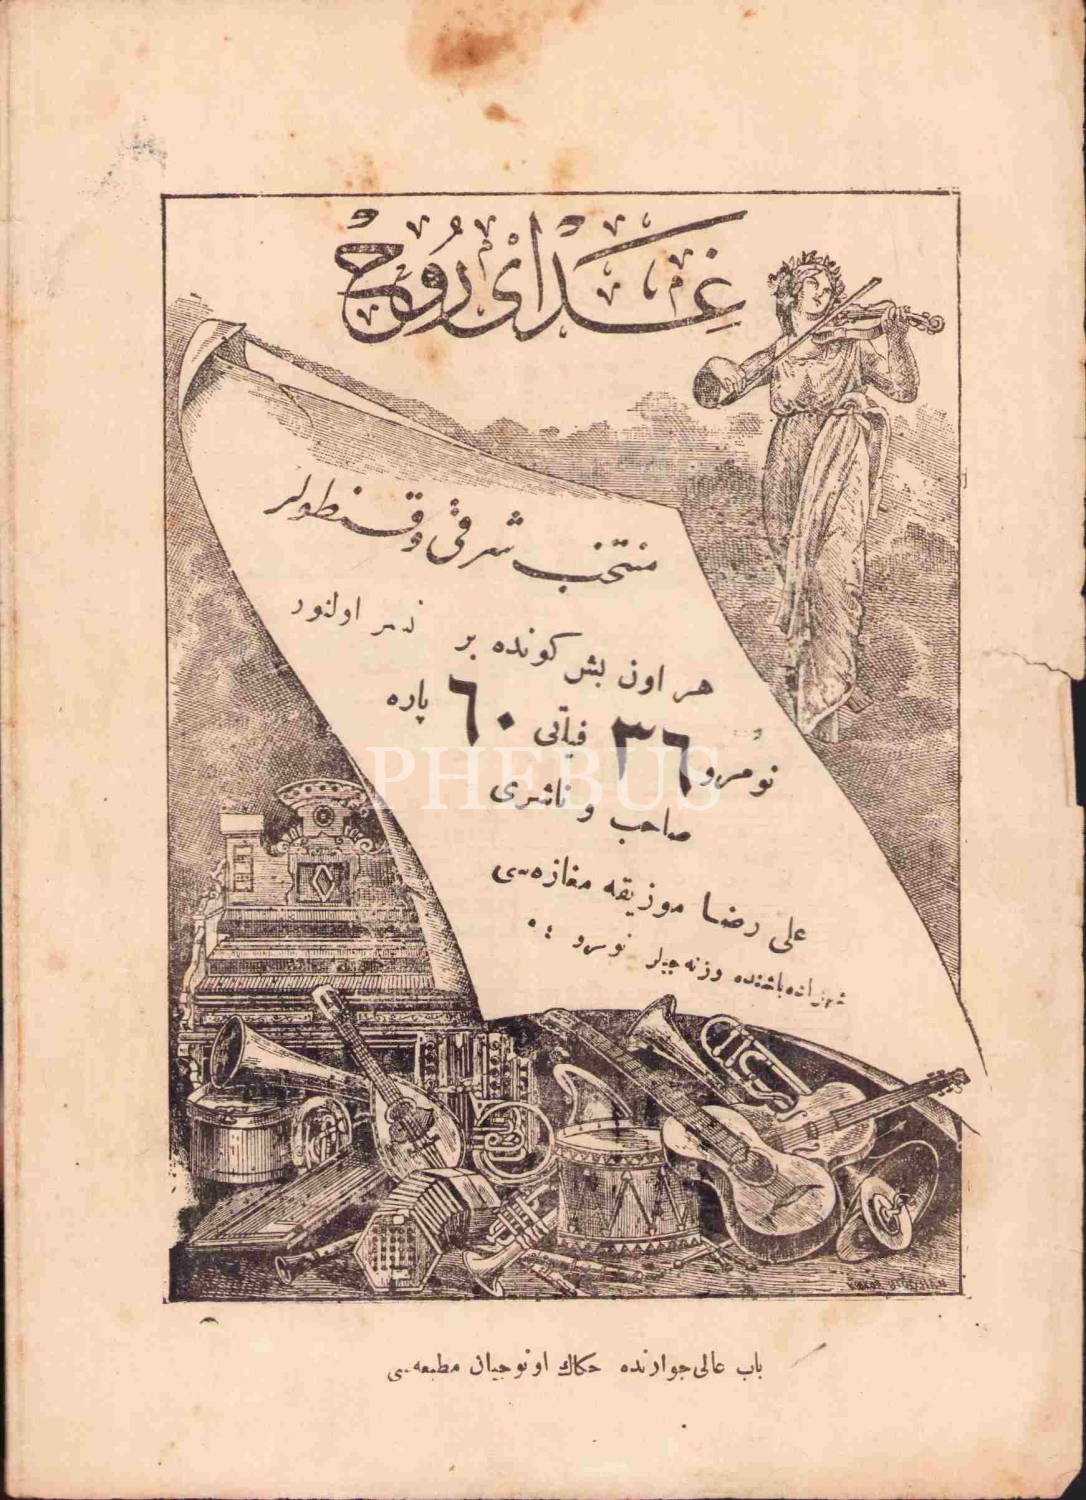 غِدَاىْ رُوحْ
منتخب شرقى و قنطولر
هر اون بش كونده بر نشر اولنور
نومرو ٣٦ فياتى ٦٠ پاره
صاحب و ناشرى
على رضا موزيقه مغازه‌سى
شهزاده‌باشنده وزنه‌جيلر نومرو ٤٠
باب عالى جوارنده حكاك اونوجيان مطبعه‌سى
PHEBUS